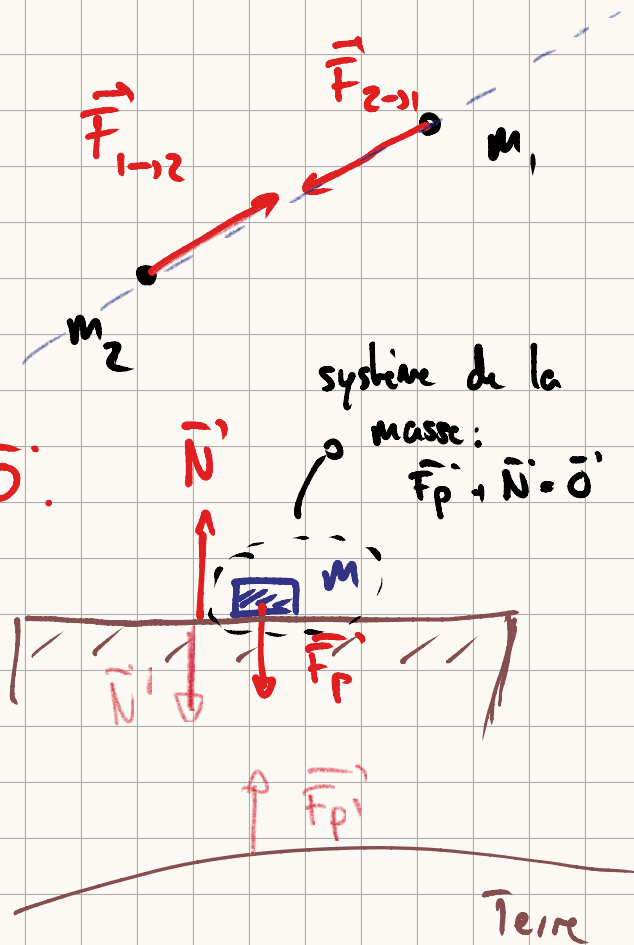 F⃗2→1
F⃗1→2
m1
m2
système de la
masse:
F⃗p + N⃗ = 0⃗
0⃗.
N⃗
m
F⃗p
N⃗'
F⃗p'
Terre